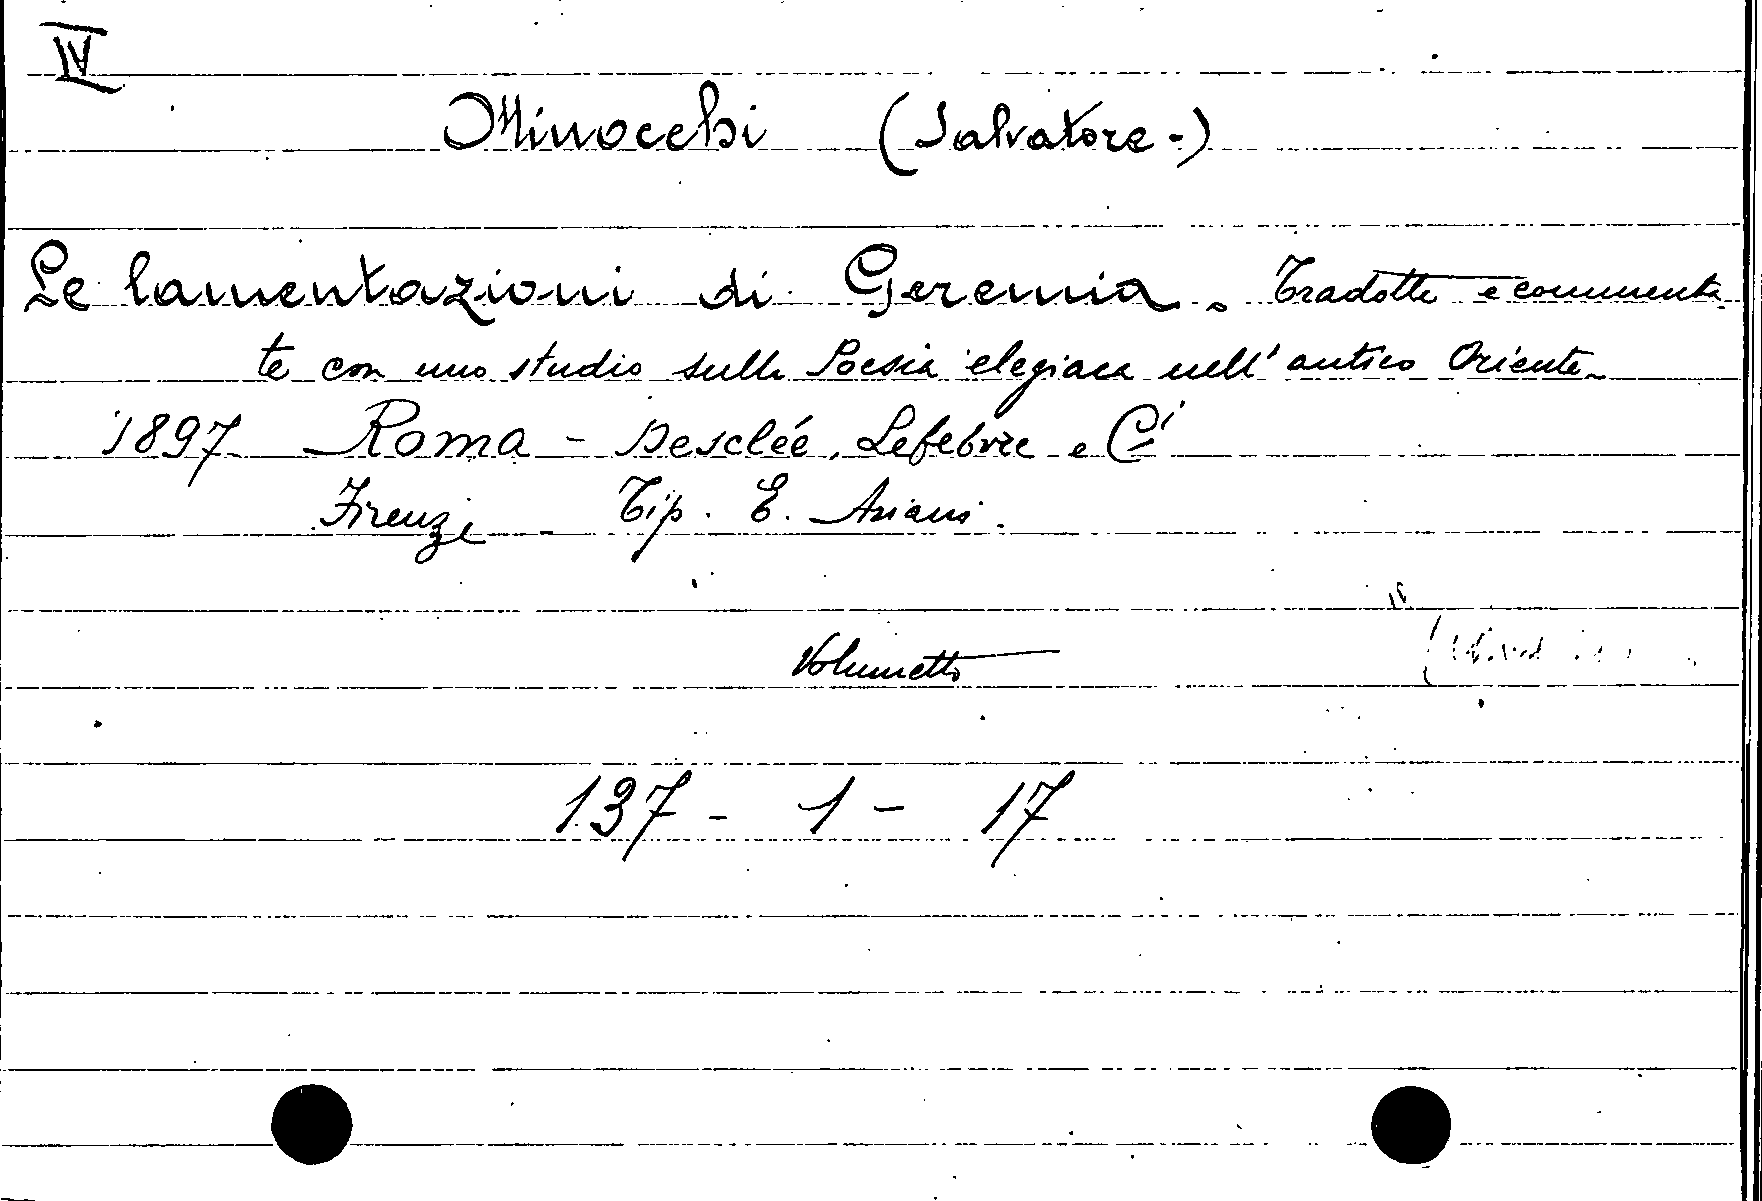 IV
Minocchi (Salvatore-)
Le lamentazioni di Geremia. Tradotte e commenta-
te con uno studio sulla Poesia elegiaca nell' antico Oriente-
1897 Roma - Desclée, Lefebvre e Ci
Firenze - Tip. E. Ariani.
Volumetto
137 - 1 - 17